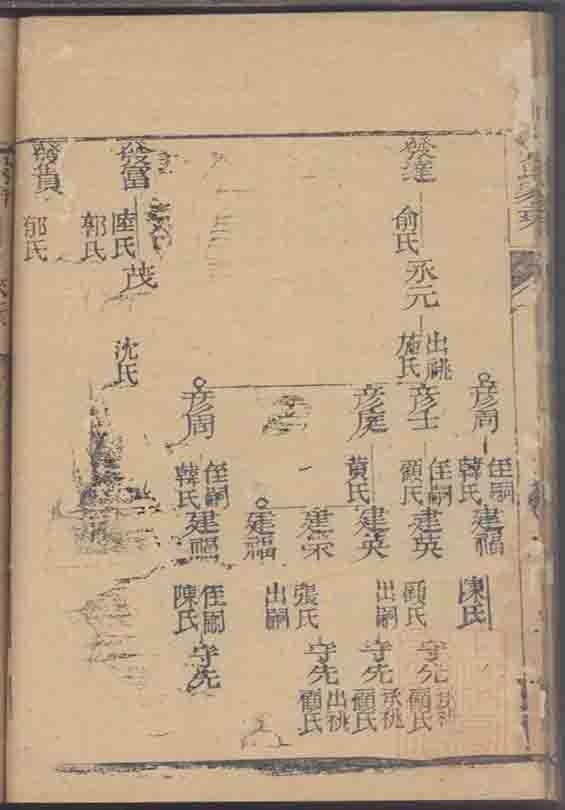 發達
俞氏
承元
出祧
施氏
彦周
侄嗣
韓氏
建福
陳氏
彦士
侄嗣
顧氏
建英
顧氏
守先
顧氏
彦庭
黃氏
建英
出嗣
守先
承祧
顧氏
建榮
張氏
守先
出祧
顧氏
建福
出嗣
彦周
侄嗣
韓氏
建福
侄嗣
陳氏
守先
發富
陸氏
郭氏
茂
沈氏
發貴
郁氏